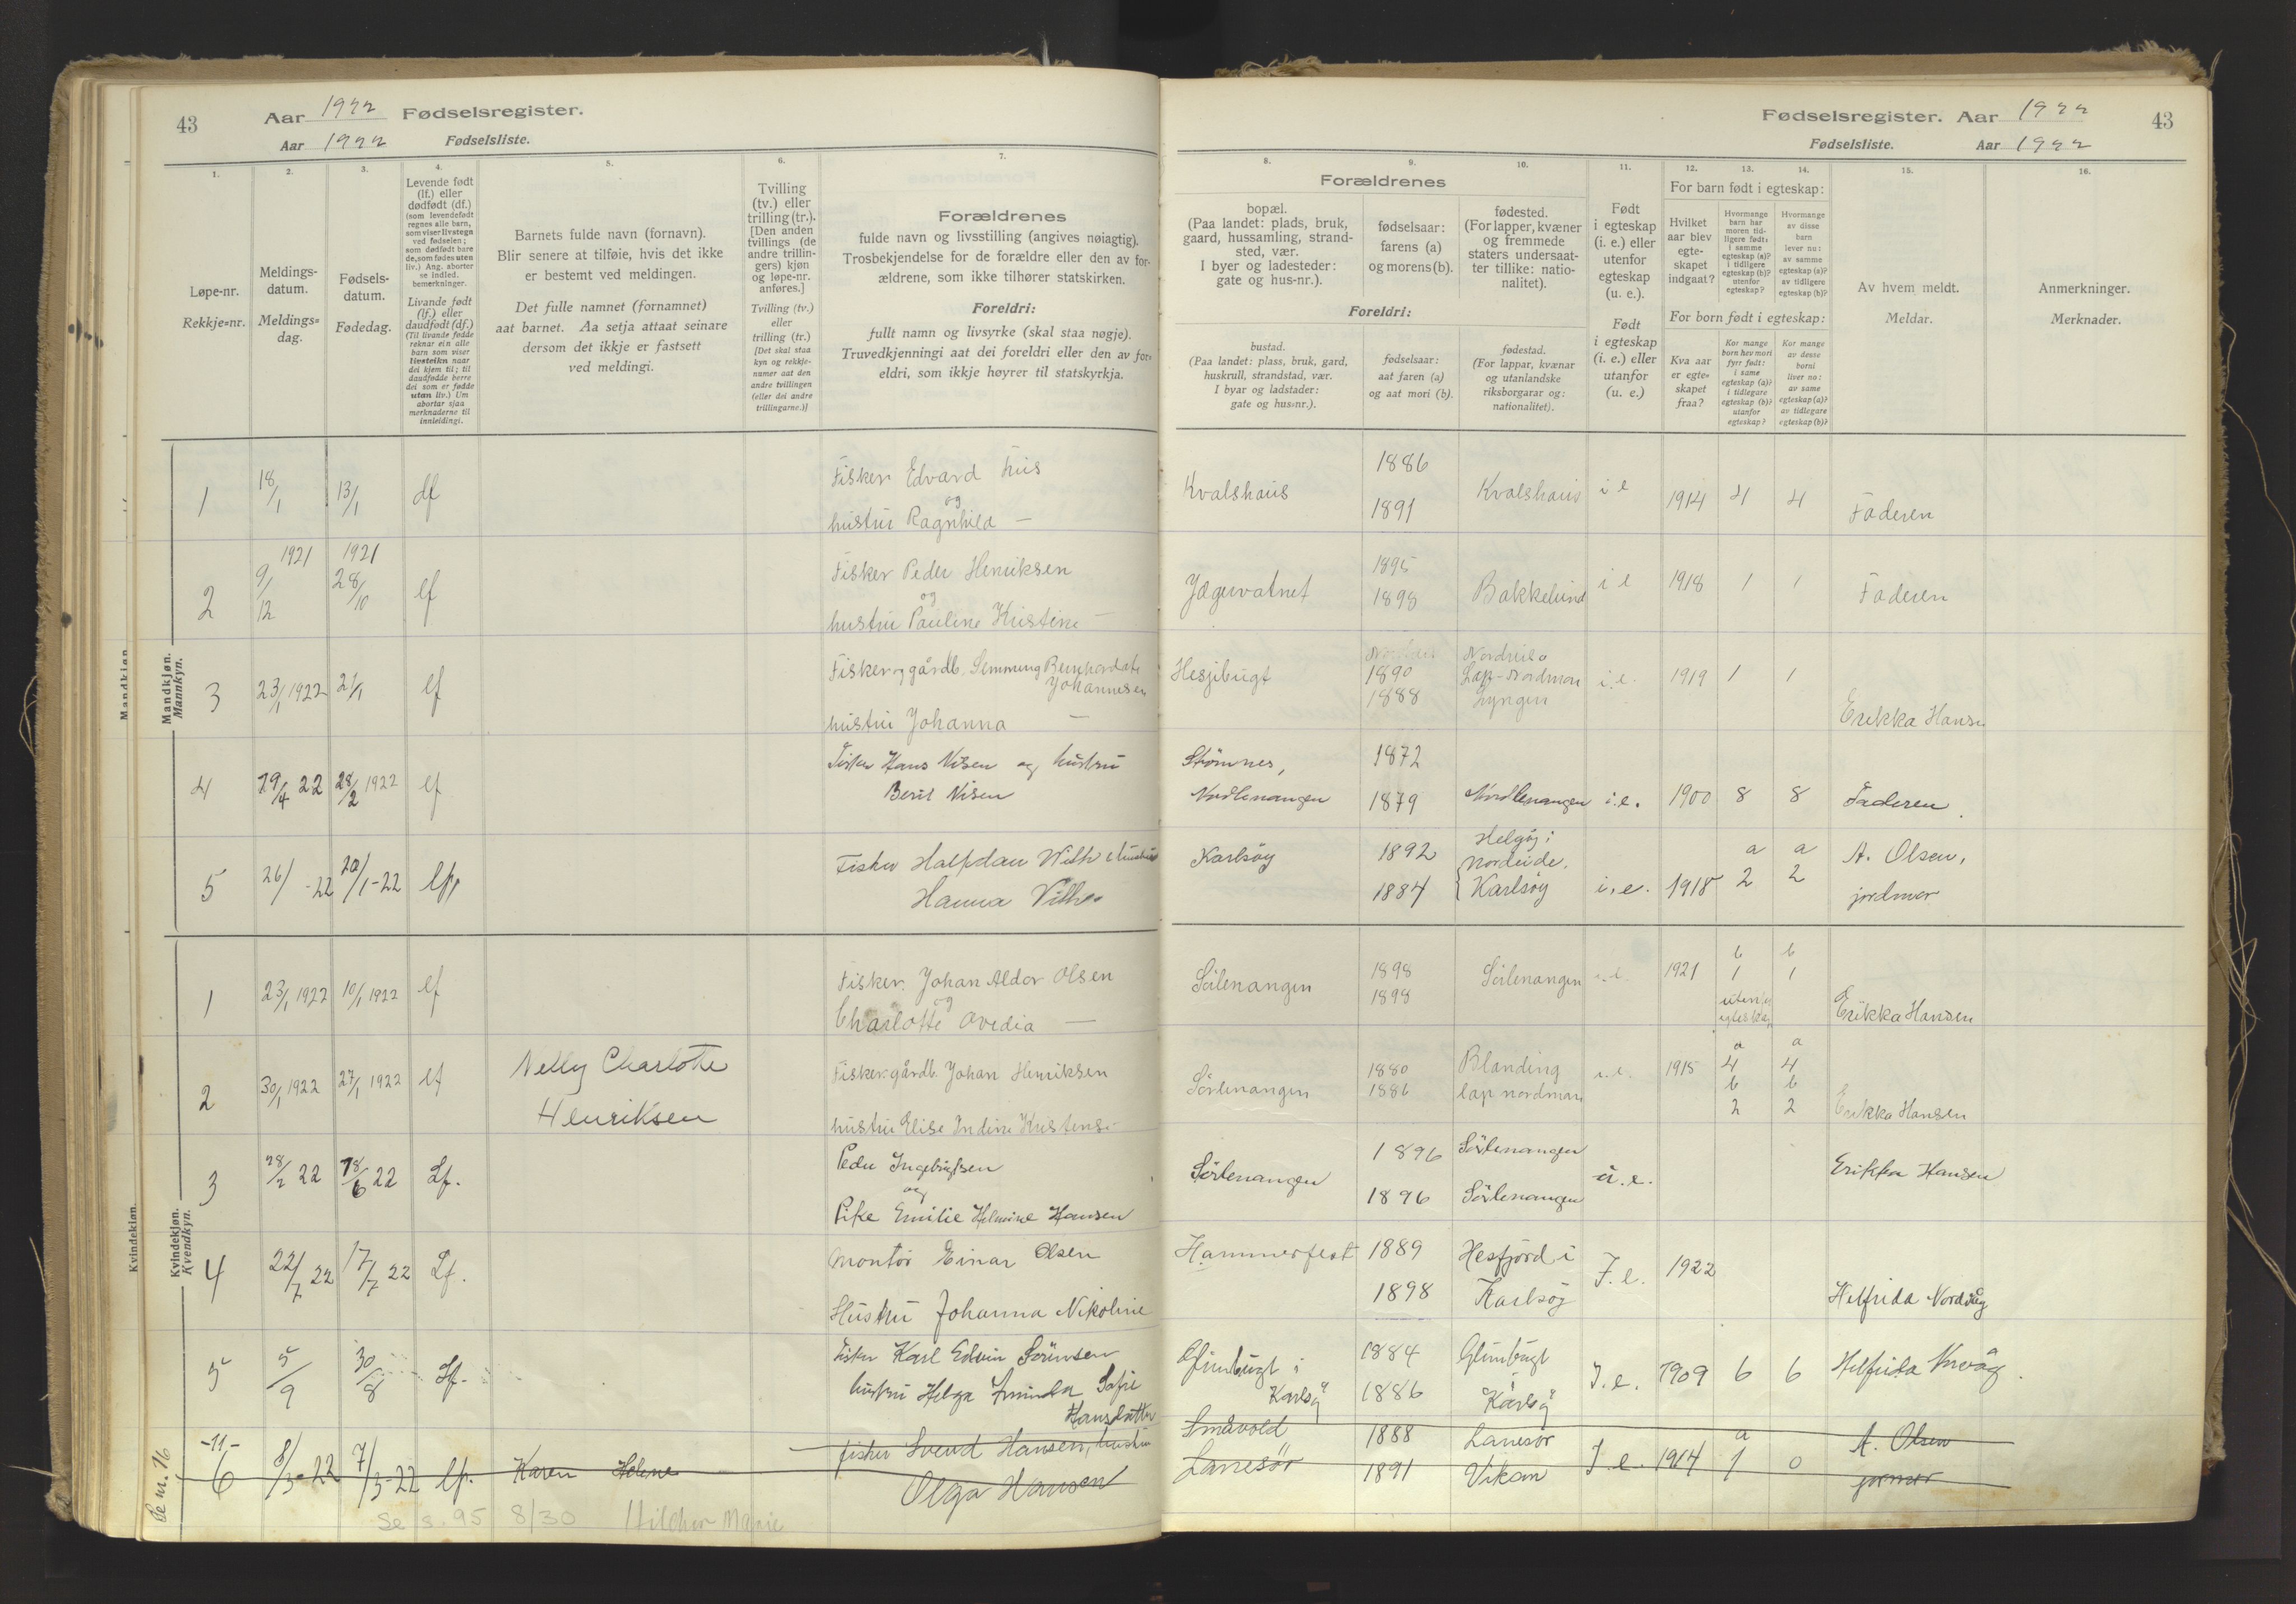 43
Aar 1922 Fødselsregister.
Aar 1922 Fødselsliste.
1.
2.
3.
4.
5.
6.
7.
Løpe-nr.
Rekkje=nr.
Meldings-
datum.
Meldings=
dag.
Fødsels-
datum.
Fødedag.
Levende født
(lf.) eller
dødfødt (df.)
(som levendefødt
regnes alle barn,
som viser livstegn
ved fødselen;
som dødfødt bare
de, som fødes uten
liv.) Ang. aborter
se indled.
bemerkninger.
Livande født
(lf.) eller
daudfødt (df.)
(Til livande fødde
reknar ein alle
barn som viser
livsteikn naar
dei kjem til; til
daudfødde berre
dei som er fødde
utan liv.) Um
abortar sjaa
merknaderne til
innleidingi.
Barnets fulde navn (fornavn).
Blir senere at tilføie, hvis det ikke
er bestemt ved meldingen.
Det fulle namnet (fornamnet)
aat barnet. Aa setja attaat seinare
dersom det ikkje er fastsett
ved meldingi.
Tvilling
(tv.) eller
trilling (tr.).
[Den anden
tvillings (de
andre trillin-
gers) kjøn
og løpe-nr.
anføres.]
Tvilling (tv.)
eller
trilling (tr.)
[Det skal staa
kyn og rekkje-
numer aat den
andre tvillingen
(eller dei andre
trillingarne.)]
Forældrenes
fulde navn og livsstilling (angives nøiagtig).
Trosbekjendelse for de forældre eller den av for-
ældrene, som ikke tilhører statskirken.
Foreldri:
fullt namn og livsyrke (skal staa nøgje).
Truvedkjenningi aat dei foreldri eller den av for=
eldri, som ikkje høyrer til statskyrkja.
Mandkjøn.
Mannkyn.
1 18/1 13/1 df Fisker Edvard hus
og
hustru Ragnhild —
2 1921 9/12 1921 28/10 lf Fisker Peder Henriksen
og
hustru Pauline Kristine —
3 23/1 1922 21/1 lf Fisker og gårdb. Johannesen
hustru Johanna —
4 29/4 22 28/2 1922 lf Fisker Hans Nilsen og hustru
Berit Nilsen
5 26/ -22 20/1-22 lf Fisker Halfdan With & hustru
Hanna With
Kvindekjøn.
Kvendkyn.
1 23/1 1922 10/1 1922 lf Fisker Johan Aldor Olsen
og
Charlotte Ovedia —
2 30/1 1922 27/1 1922 lf Nelly Charlotte Fisker gårdb. Johan Henriksen
Henriksen hustru Elise Indine Kristense
3 28/2 22 18/6 22 Lf. Peder Ingebrigtsen
og
Pike Emilie Helmine Hansen
4 22/7 22 17/7 22 Lf. Montør Einar Olsen
Hustru Johanna Nikoline
5 5/9 30/8 Lf. Fisker Karl Edvin Sørensen
hustru Helga Sofie
Hansdatter
Se nr. 16
-11-
6 8/3-22 7/3-22 lf. Karen Helene fisker Svend Hansen, hustru
Olga Hansen
Se s. 95 8/30 Marie
Fødselsregister. Aar 1922
Fødselsliste. Aar 1922
43
8.
9.
10.
11.
12.
13.
14.
15.
16.
Forældrenes
bopæl.
(Paa landet: plads, bruk,
gaard, hussamling, strand-
sted, vær.
I byer og ladesteder:
gate og hus-nr.).
fødselsaar:
farens (a)
og morens (b).
fødested.
(For lapper, kvæner
og fremmede
staters undersaat-
ter tillike: natio-
nalitet).
Foreldri:
bustad.
(Paa landet: plass, bruk, gard,
huskrull, strandstad, vær.
I byar og ladstader:
gate og hus=nr.).
fødselsaar:
aat faren (a)
og aat mori (b).
fødestad.
(For lappar, kvænar
og utanlandske
riksborgarar og:
nationalitet).
Født
i egteskap
(i. e.) eller
utenfor
egteskap
(u. e.).
Født
i egteskap
(i. e.) eller
utanfor
(u. e.)
For barn født i egteskap:
Hvilket
aar blev
egte-
skapet
indgaat?
Hvormange
barn har
moren tid-
ligere født:
i samme
egteskap (a)?
i tidligere
egteskap (b)?
utenfor
egteskap?
Hvormange
av disse
barn
lever nu:
av samme
egteskap (a)?
av tidligere
egteskap (b)?
For born født i egteskap:
Kva aar
er egte=
skapet
fraa?
Kor mange
born hev mori
fyrr født:
i same
egteskap (a)?
i tidlegare
egteskap (b)?
utanfor
egteskap?
Kor mange
av desse
borni
liver no:
av same
egteskap (a)?
av tidlegare
egteskap (b)?
Av hvem meldt.
Meldar.
Anmerkninger.
Merknader.
Kvalshaus 1886 1891 Kvalshaus i e 1914 4 4 Faderen
Jægervatnet 1895 1898 Bakkelund i e 1918 1 1 Faderen
Hesjibugt 1890 1888 Lap-Nordman Lyngen i.e. 1919 1 1 Erikka Hansen
Strømnes,
Nordlenangen 1872 1879 Nordlenangen i.e. 1900 8 8 Faderen.
Karlsøy 1892 1884 Helgøy i
Nordeide.
Karlsøy i.e. 1918 a 2 a 2 A. Olsen,
jordmor
Sørlenangen 1898 1898 Sørlenangen i.e. 1921 b 1 b 1
utenfor
egteskap
Erikka Hansen
Sørlenangen 1880 1886 Blanding
lap nordman i.e. 1915 a 4 b 2 a 4 b 2 Erikka Hansen
Sørlenangen 1896 1896 Sørlenangen
Sørlenangen u.e. Erikka Hansen
Hammerfest 1889 1898 Hesfjord i
Karlsøy I.e. 1922 Helfrida Nordvåg
Glimbugt i
Karlsøy 1884 1886 Glimbugt
i
Karlsøy I.e. 1909 6 6 Helfrida
Småvold
Lanesør 1888 1891 Lanesør
Vikan I.e. 1914 a 1 0 A. Olsen
jormor